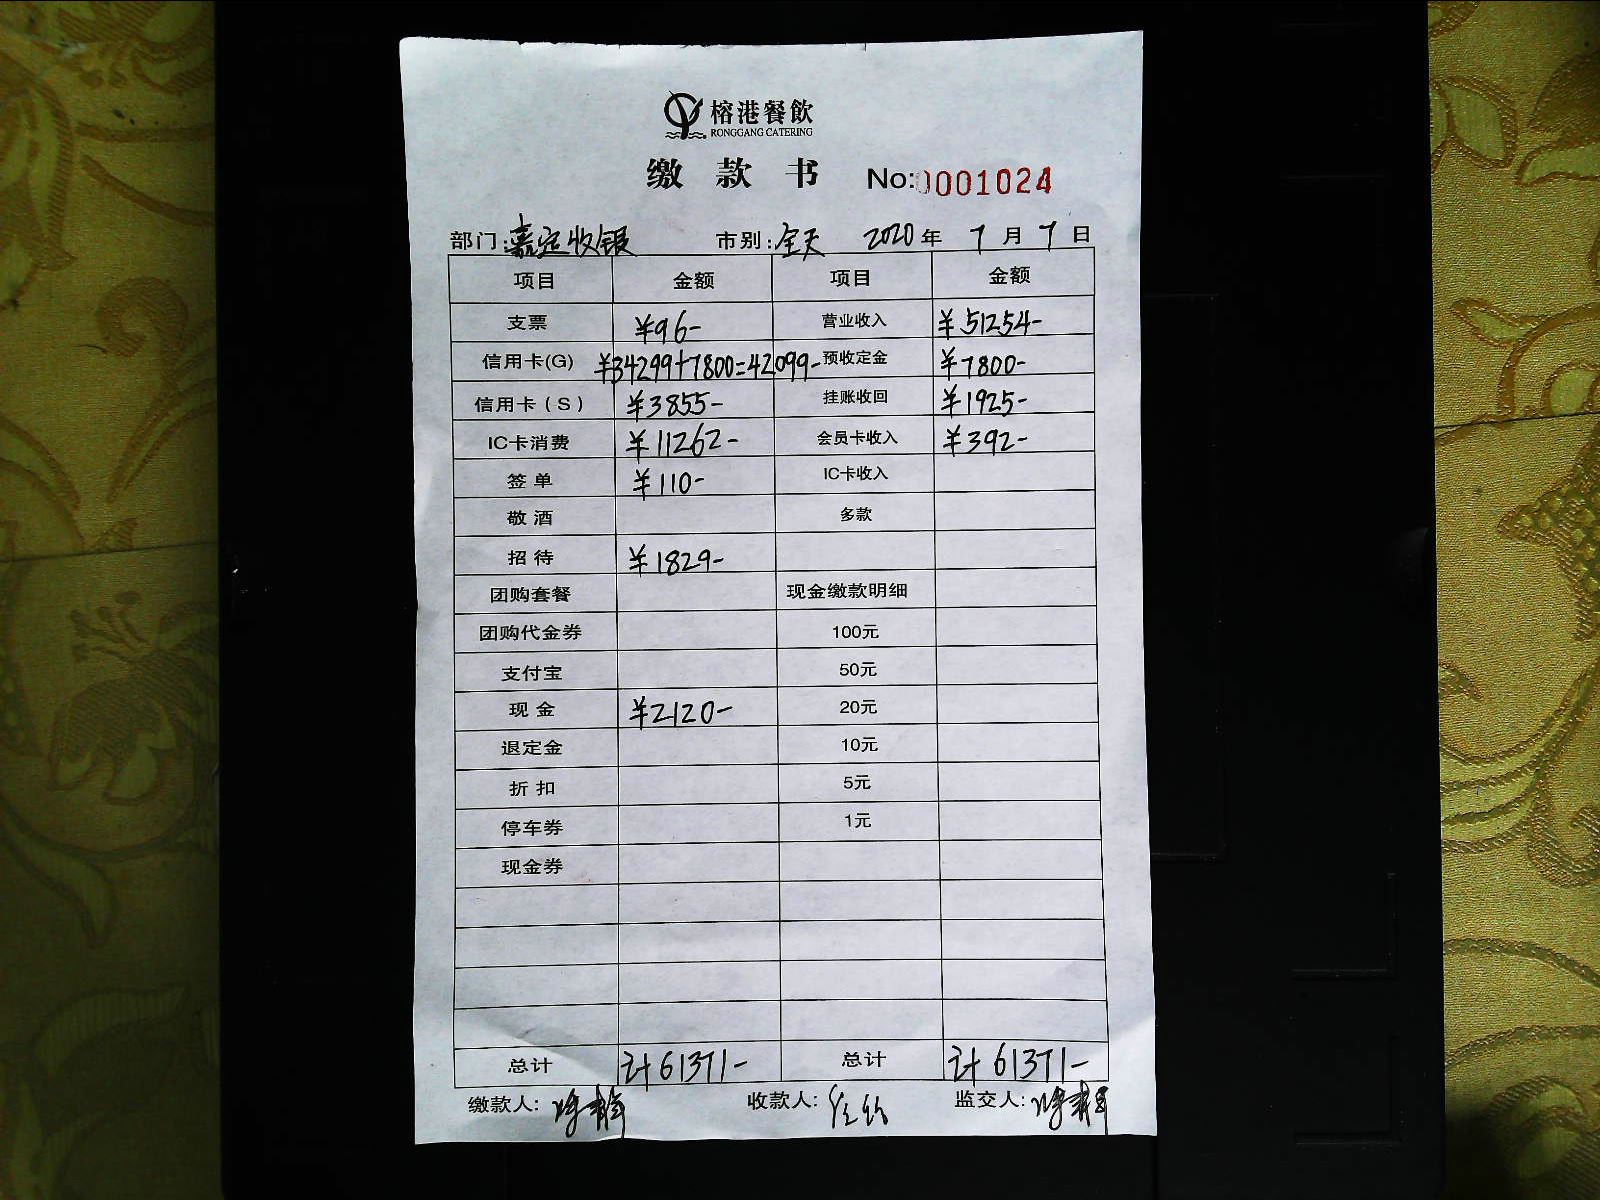 榕港餐飲
RONGGANG CATERING
缴款书 No:0001024
部门:嘉定收银 市别:全天 2020年7月7日
项目 金额 项目 金额
支票 ¥96- 营业收入 ¥51254-
信用卡(G) ¥34299+7800=42099- 预收定金 ¥7800-
信用卡(S) ¥3855- 挂账收回 ¥1925-
IC卡消费 ¥11262- 会员卡收入 ¥392-
签单 ¥110- IC卡收入
敬酒 多款
招待 ¥1829-
团购套餐 现金缴款明细
团购代金券 100元
支付宝 50元
现金 ¥2120- 20元
退定金 10元
折扣 5元
停车券 1元
现金券
总计 计61371- 总计 计61371-
缴款人: 收款人: 监交人: